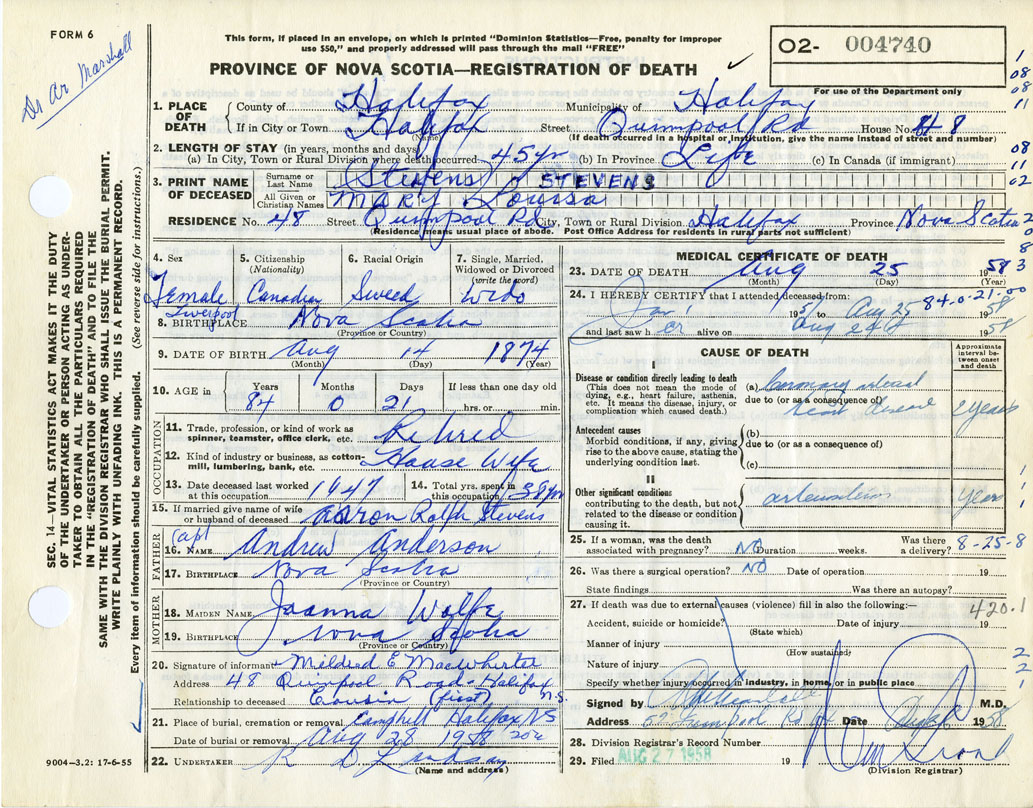 FORM 6
Dr Ar Marshall
This form, if placed in an envelope, on which is printed "Dominion Statistics—Free, penalty for improper
use $50," and properly addressed will pass through the mail "FREE"
O2- 004740
For use of the Department only
PROVINCE OF NOVA SCOTIA—REGISTRATION OF DEATH
1. PLACE OF DEATH County of Halifax Municipality of Halifax
If in City or Town Halifax (Name) Street Quinpool Rd House No. 48
(If death occurred in a hospital or institution, give the name instead of street and number)
2. LENGTH OF STAY (in years, months and days)
(a) In City, Town or Rural Division where death occurred 45 yr (b) In Province Life (c) In Canada (if immigrant)
3. PRINT NAME OF DECEASED Surname or Last Name Stevens STEVENS
All Given or Christian Names Mary
RESIDENCE No. 48 Street Quinpool Rd City, Town or Rural Division Halifax Province Nova Scotia
(Residence means usual place of abode. Post Office Address for residents in rural parts not sufficient)
4. Sex Female
5. Citizenship (Nationality) Canadian
6. Racial Origin Sweed
7. Single, Married, Widowed or Divorced (write the word) Wido
Liverpool
8. BIRTHPLACE Nova Scotia
(Province or Country)
9. DATE OF BIRTH Aug 14 1874
(Month) (Day) (Year)
10. AGE in Years 84 Months 0 Days 21 If less than one day old
hrs. or min.
OCCUPATION
11. Trade, profession, or kind of work as spinner, teamster, office clerk, etc. Retired
12. Kind of industry or business, as cotton-mill, lumbering, bank, etc. House Wife
13. Date deceased last worked at this occupation 1947
14. Total yrs. spent in this occupation
15. If married give name of wife or husband of deceased Aaron Ralph Stevens
FATHER
16. NAME Capt Andrew Anderson
17. BIRTHPLACE Nova Scotia
(Province or Country)
MOTHER
18. MAIDEN NAME Joanna Wolfe
19. BIRTHPLACE Nova Scotia
(Province or Country)
20. Signature of informant Mildred E MacWhirter
Address 48 Quinpool Road Halifax N.S.
Relationship to deceased Cousin (first)
21. Place of burial, cremation or removal Camphill Halifax NS
Date of burial or removal Aug 28 1958
22. UNDERTAKER
(Name and address)
9004—3.2: 17-6-55
MEDICAL CERTIFICATE OF DEATH
23. DATE OF DEATH Aug 25 1958
(Month) (Day) (Year)
24. I HEREBY CERTIFY that I attended deceased from:
84-0-21-00
Jan 195 to Aug 25 1958
and last saw h er alive on Aug 24 1958
CAUSE OF DEATH
Approximate interval between onset and death
I
Disease or condition directly leading to death
(This does not mean the mode of dying, e.g., heart failure, asthenia, etc. It means the disease, injury, or complication which caused death.)
(a) Coronary
due to (or as a consequence of)
heart disease 2 years
Antecedent causes
Morbid conditions, if any, giving rise to the above cause, stating the underlying condition last.
(b)
due to (or as a consequence of)
(c)
II
Other significant conditions
contributing to the death, but not related to the disease or condition causing it.
years
25. If a woman, was the death associated with pregnancy? NO Duration weeks. Was there a delivery? 8-25-8
26. Was there a surgical operation? NO Date of operation 19
State findings Was there an autopsy?
27. If death was due to external causes (violence) fill in also the following:—
420.1
Accident, suicide or homicide? Date of injury 19
(State which)
Manner of injury
(How sustained)
Nature of injury
Specify whether injury occurred in industry, in home, or in public place
Signed by M.D.
Address Quinpool Rd Date 1958
28. Division Registrar's Record Number
29. Filed AUG 27 1958 19
(Division Registrar)
SEC. 14—VITAL STATISTICS ACT MAKES IT THE DUTY
OF THE UNDERTAKER OR PERSON ACTING AS UNDER-
TAKER TO OBTAIN ALL THE PARTICULARS REQUIRED
IN THE "REGISTRATION OF DEATH" AND TO FILE THE
SAME WITH THE DIVISION REGISTRAR WHO SHALL ISSUE THE BURIAL PERMIT.
WRITE PLAINLY WITH UNFADING INK. THIS IS A PERMANENT RECORD.
Every item of information should be carefully supplied. (See reverse side for instructions.)
1
08
08
11
08
11
02
2
0
8
3
1
1
1
2
2
1